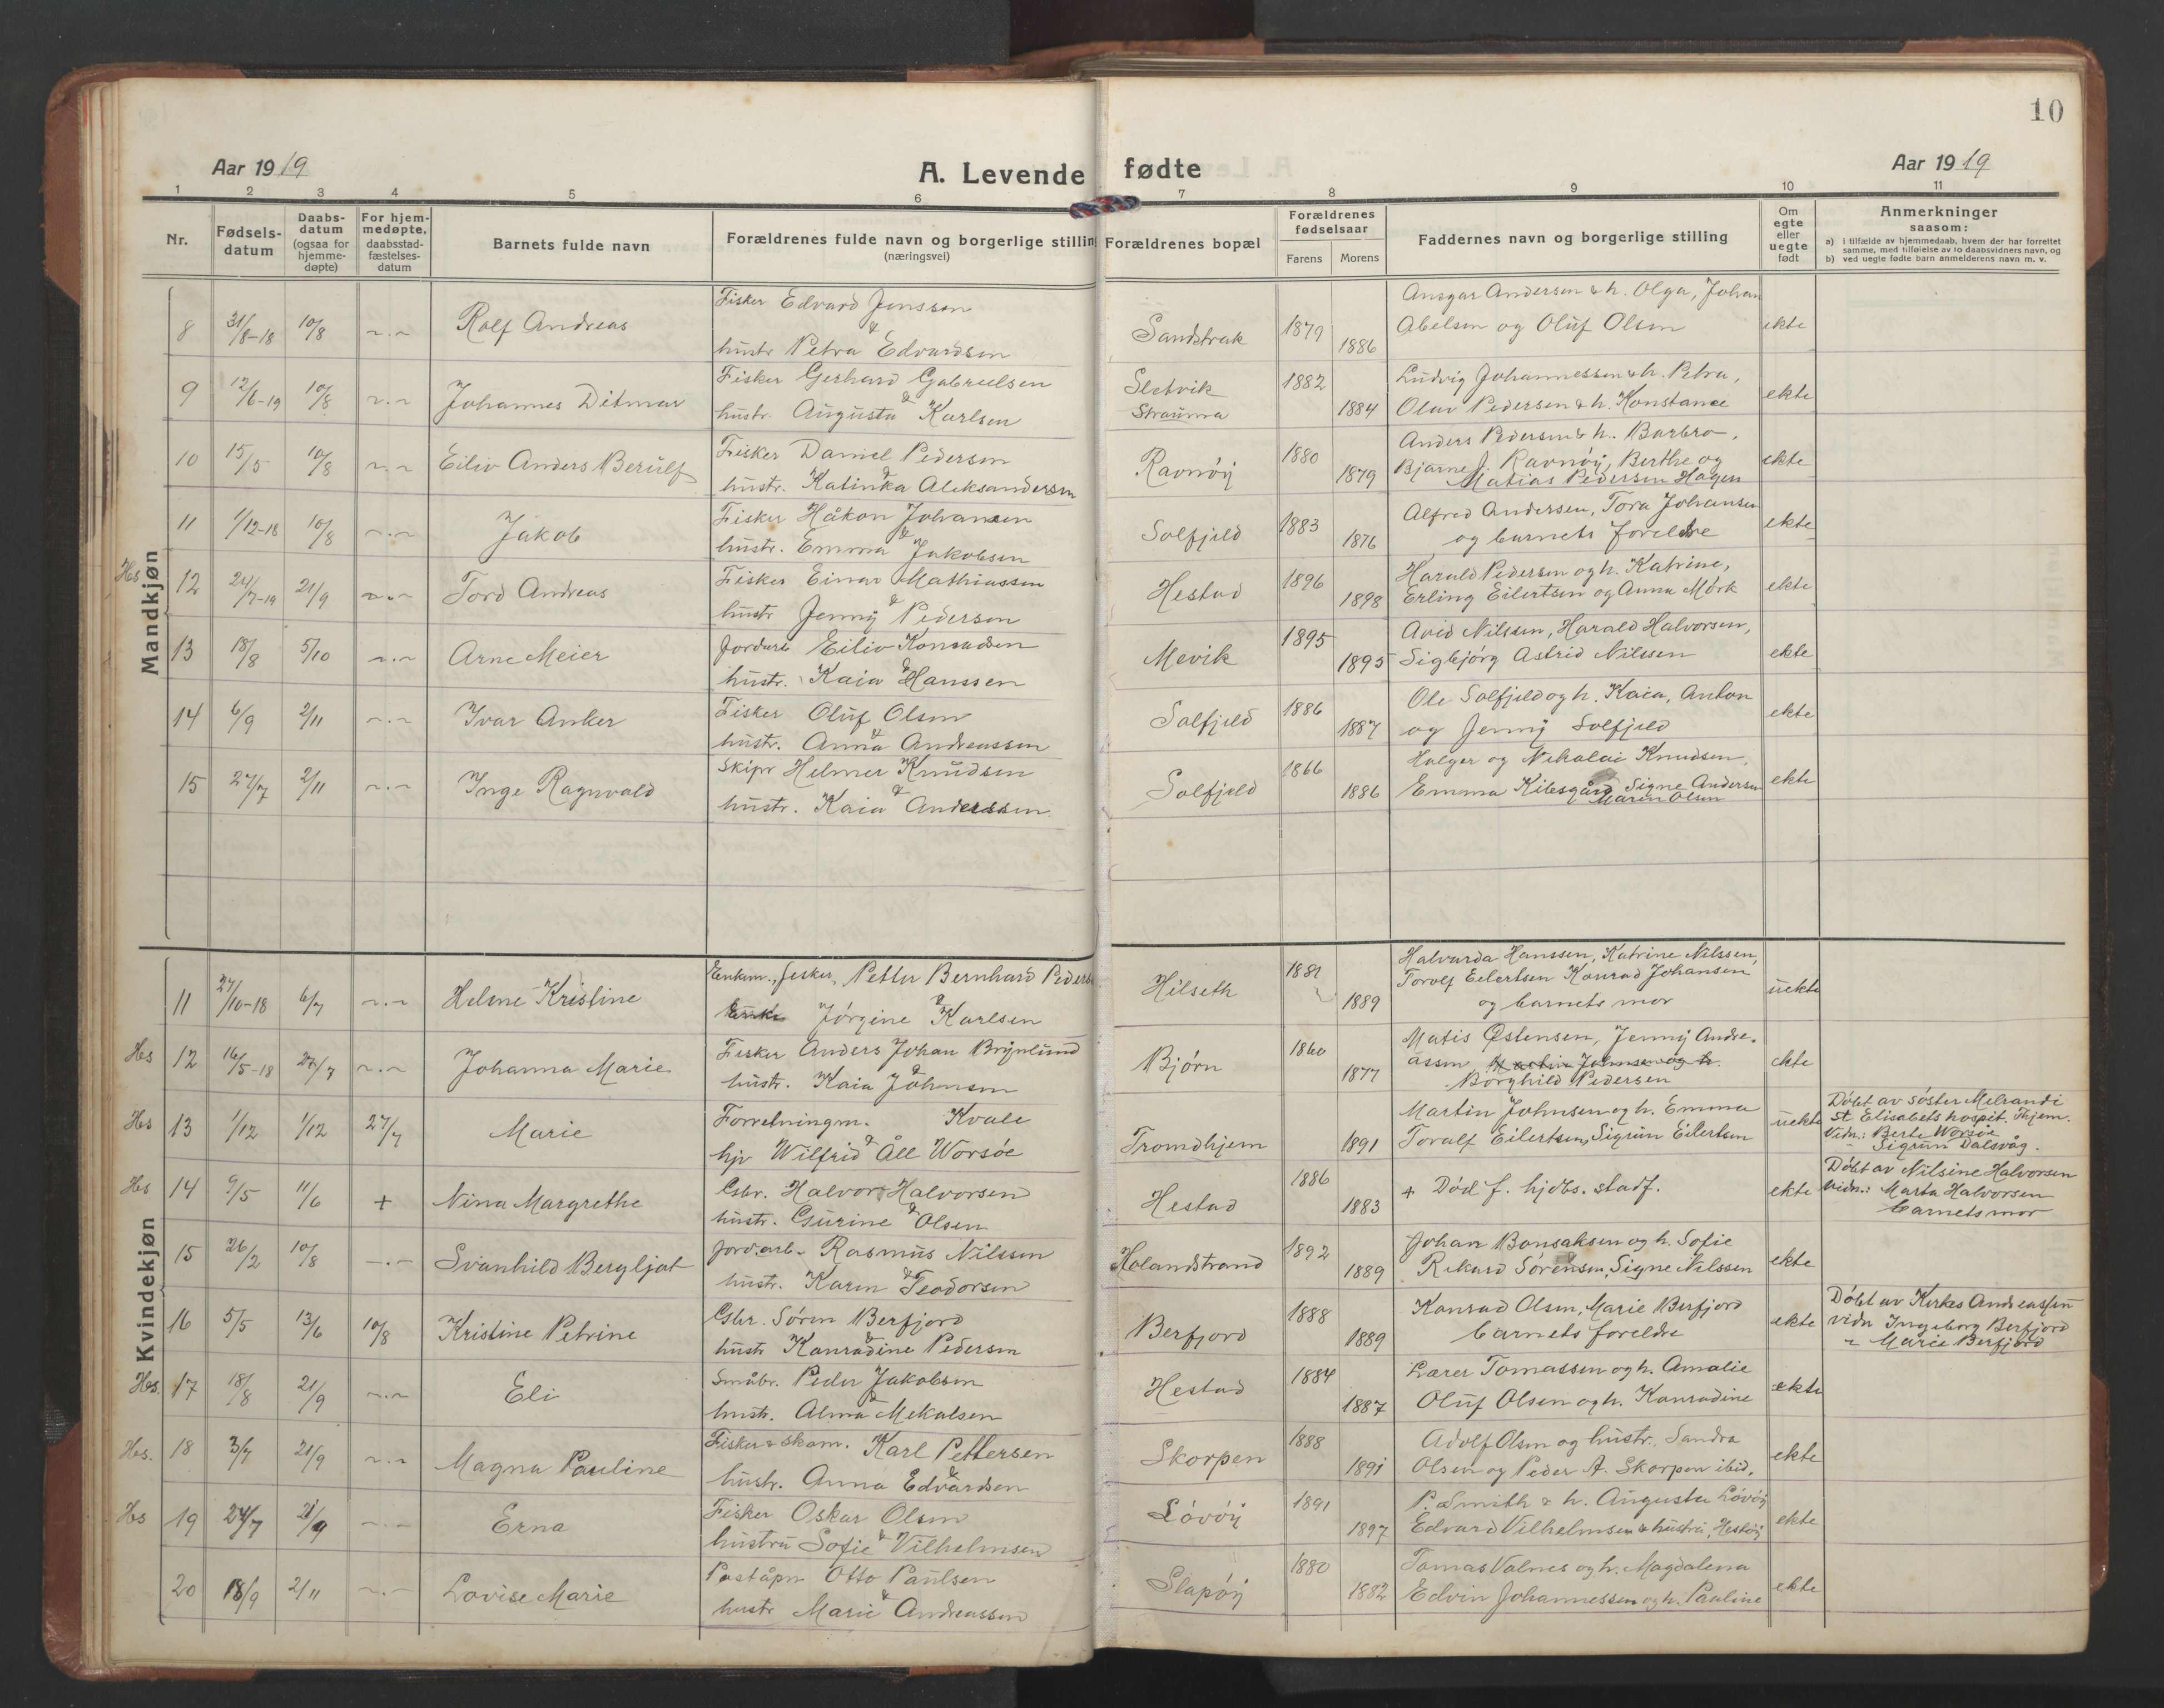 10
Aar 1919
A. Levende fødte
Aar 1919
1 2 3 4 5 6 7 8 9 10 11
Nr.
Fødsels-
datum
Daabs-
datum
(ogsaa for
hjemme-
døpte)
For hjem-
medøpte,
daabsstad-
fæstelses-
datum
Barnets fulde navn
Forældrenes fulde navn og borgerlige stilling
(næringsvei)
Forældrenes bopæl
Forældrenes
fødselsaar
Farens Morens
Faddernes navn og borgerlige stilling
Om
egte
eller
uegte
født
Anmerkninger
saasom:
a) i tilfælde av hjemmedaab, hvem der har forrettet
samme, med tilføielse av to daabsvidners navn, og
b) ved uegte fødte barn anmelderens navn m. v.
Mandkjøn
8 31/8-18 10/8 ~.~ Rolf Andreas
Fisker Edvard Jenssen
&
hustr Petra Edvardsen
Sandstrak 1879 1886
Ansgar Andersen & h. Olga, Johan
Abelsen og Oluf Olsen
ekte
9 12/6-19 10/8 ~.~ Johannes Ditmar
Fisker Gerhard Gabrielsen
&
hustr. Augusta Karlsen
Sletvik
Strauma
1882 1884
Ludvig Johannessen & h. Petra,
Olav Pedersen & h. Konstance
ekte
10 15/5 10/8 ~.~ Eiliv Anders Berulf
Fisker Daniel Pedersen
&
hustr. Katinka Aleksandersen
Ravnöy 1880 1879
Anders Pedersen & h. Barbro,
Bjarne J. Ravnöy, Berthe og
Matias Pedersen Hagen
ekte
11 1/12-18 10/8 ~.~ Jakob
Fisker Håkon Johansen
&
hustr. Emma Jakobsen
Solfjeld 1883 1876
Alfred Andersen, Tora Johansen
og barnets foreldre
ekte
Hs 12 24/7-19 21/9 ~.~ Tord Andreas
Fisker Einar Mathiassen
&
hustr Jenny Pedersen
Hestad 1896 1898
Harald Pedersen og h. Katrine,
Erling Eilertsen og Anna Mörk
ekte
13 18/8 5/10 ~.~ Arne Meier
Jordarb Eiliv Konradsen
&
hustr. Kaia Hanssen
Mevik 1895 1895
Arid Nilssen, Harald Halvorsen,
Sigbjörg Astrid Nilssen
ekte
14 6/9 2/11 ~.~ Ivar Anker
Fisker Oluf Olsen
&
hustr. Anna Andreassen
Solfjeld 1886 1887
Ole Solfjeld og h. Kaia, Anton
og Jenny Solfjeld
ekte
15 27/7 2/11 ~.~ Inge Ragnvald
Skipr Helmer Knudsen
&
hustr. Kaia Anderssen
Solfjeld 1866 1886
Holger og Nikolai Knudsen,
Emma Kilesgård Signe Andersen
Maren Olsen
ekte
Kvindekjøn
11 27/10-18 6/7 ~.~ Helene Kristine
Enkem., fisker, Petter Bernhard Peders
&
Jörgine Karlsen
Hilseth 1889
Halvarda Hanssen, Katrine Nilssen,
Torolf Eilertsen Konrad Johansen
og barnets mor
uekte
Hs 12 16/5-18 27/7 ~.~ Johanna Marie
Fisker Anders Johan Brynlund
&
hustr. Kaia Johnsen
Bjørn 1860 1877
Matis Østensen, Jenny Andre-
assen, Martin Johnsen og h.
Borghild Pedersen
ekte
Hs 13 1/12 1/12 27/7 Marie
Forretningm. Kvale
&
hjv Wilfrid Åll Worsöe
Tromdhjem 1891
Martin Johnsen og h. Emma
Toralf Eilertsen, Sigrun Eilertsen
uekte
Döbt av söster Melrandi
St Elisabets hospit. Thjem.
Vidn.: Berte Worsöe
" Sigrun Dalsvåg.
Hs 14 9/5 11/6 + Nina Margrethe
Gbr. Halvor Halvorsen
&
hustr. Gurine Olsen
Hestad 1886 1883
+ Död f. hjdbs. stadf.
ekte
Döbt av Nilsine Halvorsen
Vidn.: Marta Halvorsen
barnets mor
15 26/2 10/8 ~.~ Svanhild Bergljot
Jord.arb. Rasmus Nilssen
&
hustr. Karen Teodorsen
Holandstrand 1892 1889
Johan Bonsaksen og h. Sofie
Rikard Sörensen, Signe Nilssen
ekte
16 5/5 13/6 10/8 Kristine Petrine
Gbr. Sören Berfjord
&
hustr Konradine Pedersen
Berfjord 1888 1889
Konrad Olsen, Marie Berfjord
barnets foreldre
ekte
Döbt av Kirkes Andreassen
vidn Ingeborg Berfjord
" Marie Berfjord
Hs. 17 18/8 21/9 ~.~ Eli
Småbr. Peder Jakobsen
&
hustr. Alma Mekalsen
Hestad 1884 1887
Lærer Tomassen og h. Amalie
Oluf Olsen og h. Konradine
ekte
Hs. 18 3/7 21/9 ~.~ Magna Pauline
Fisker & skom. Karl Pettersen
&
hustr. Anna Edvardsen
Skorpen 1888 1891
Adolf Olsen og hustr., Sandra
Olsen og Peder A. Skorpen ibid.
ekte
Hs 19 24/7 21/9 ~.~ Erna
Fisker Oskar Olsen
&
hustru Sofie Vilhelmsen
Lövöy 1891 1897
P. Smith & h. Augusta Lövöy
Edvard Vilhelmsen & hustru, Hestöy
ekte
20 18/9 2/11 ~.~ Lovise Marie
Poståpn Otto Paulsen
&
hustr Marie Andreassen
Slapöy 1880 1882
Tomas Valnes og h. Magdalena
Edvin Johannessen og h. Pauline
ekte